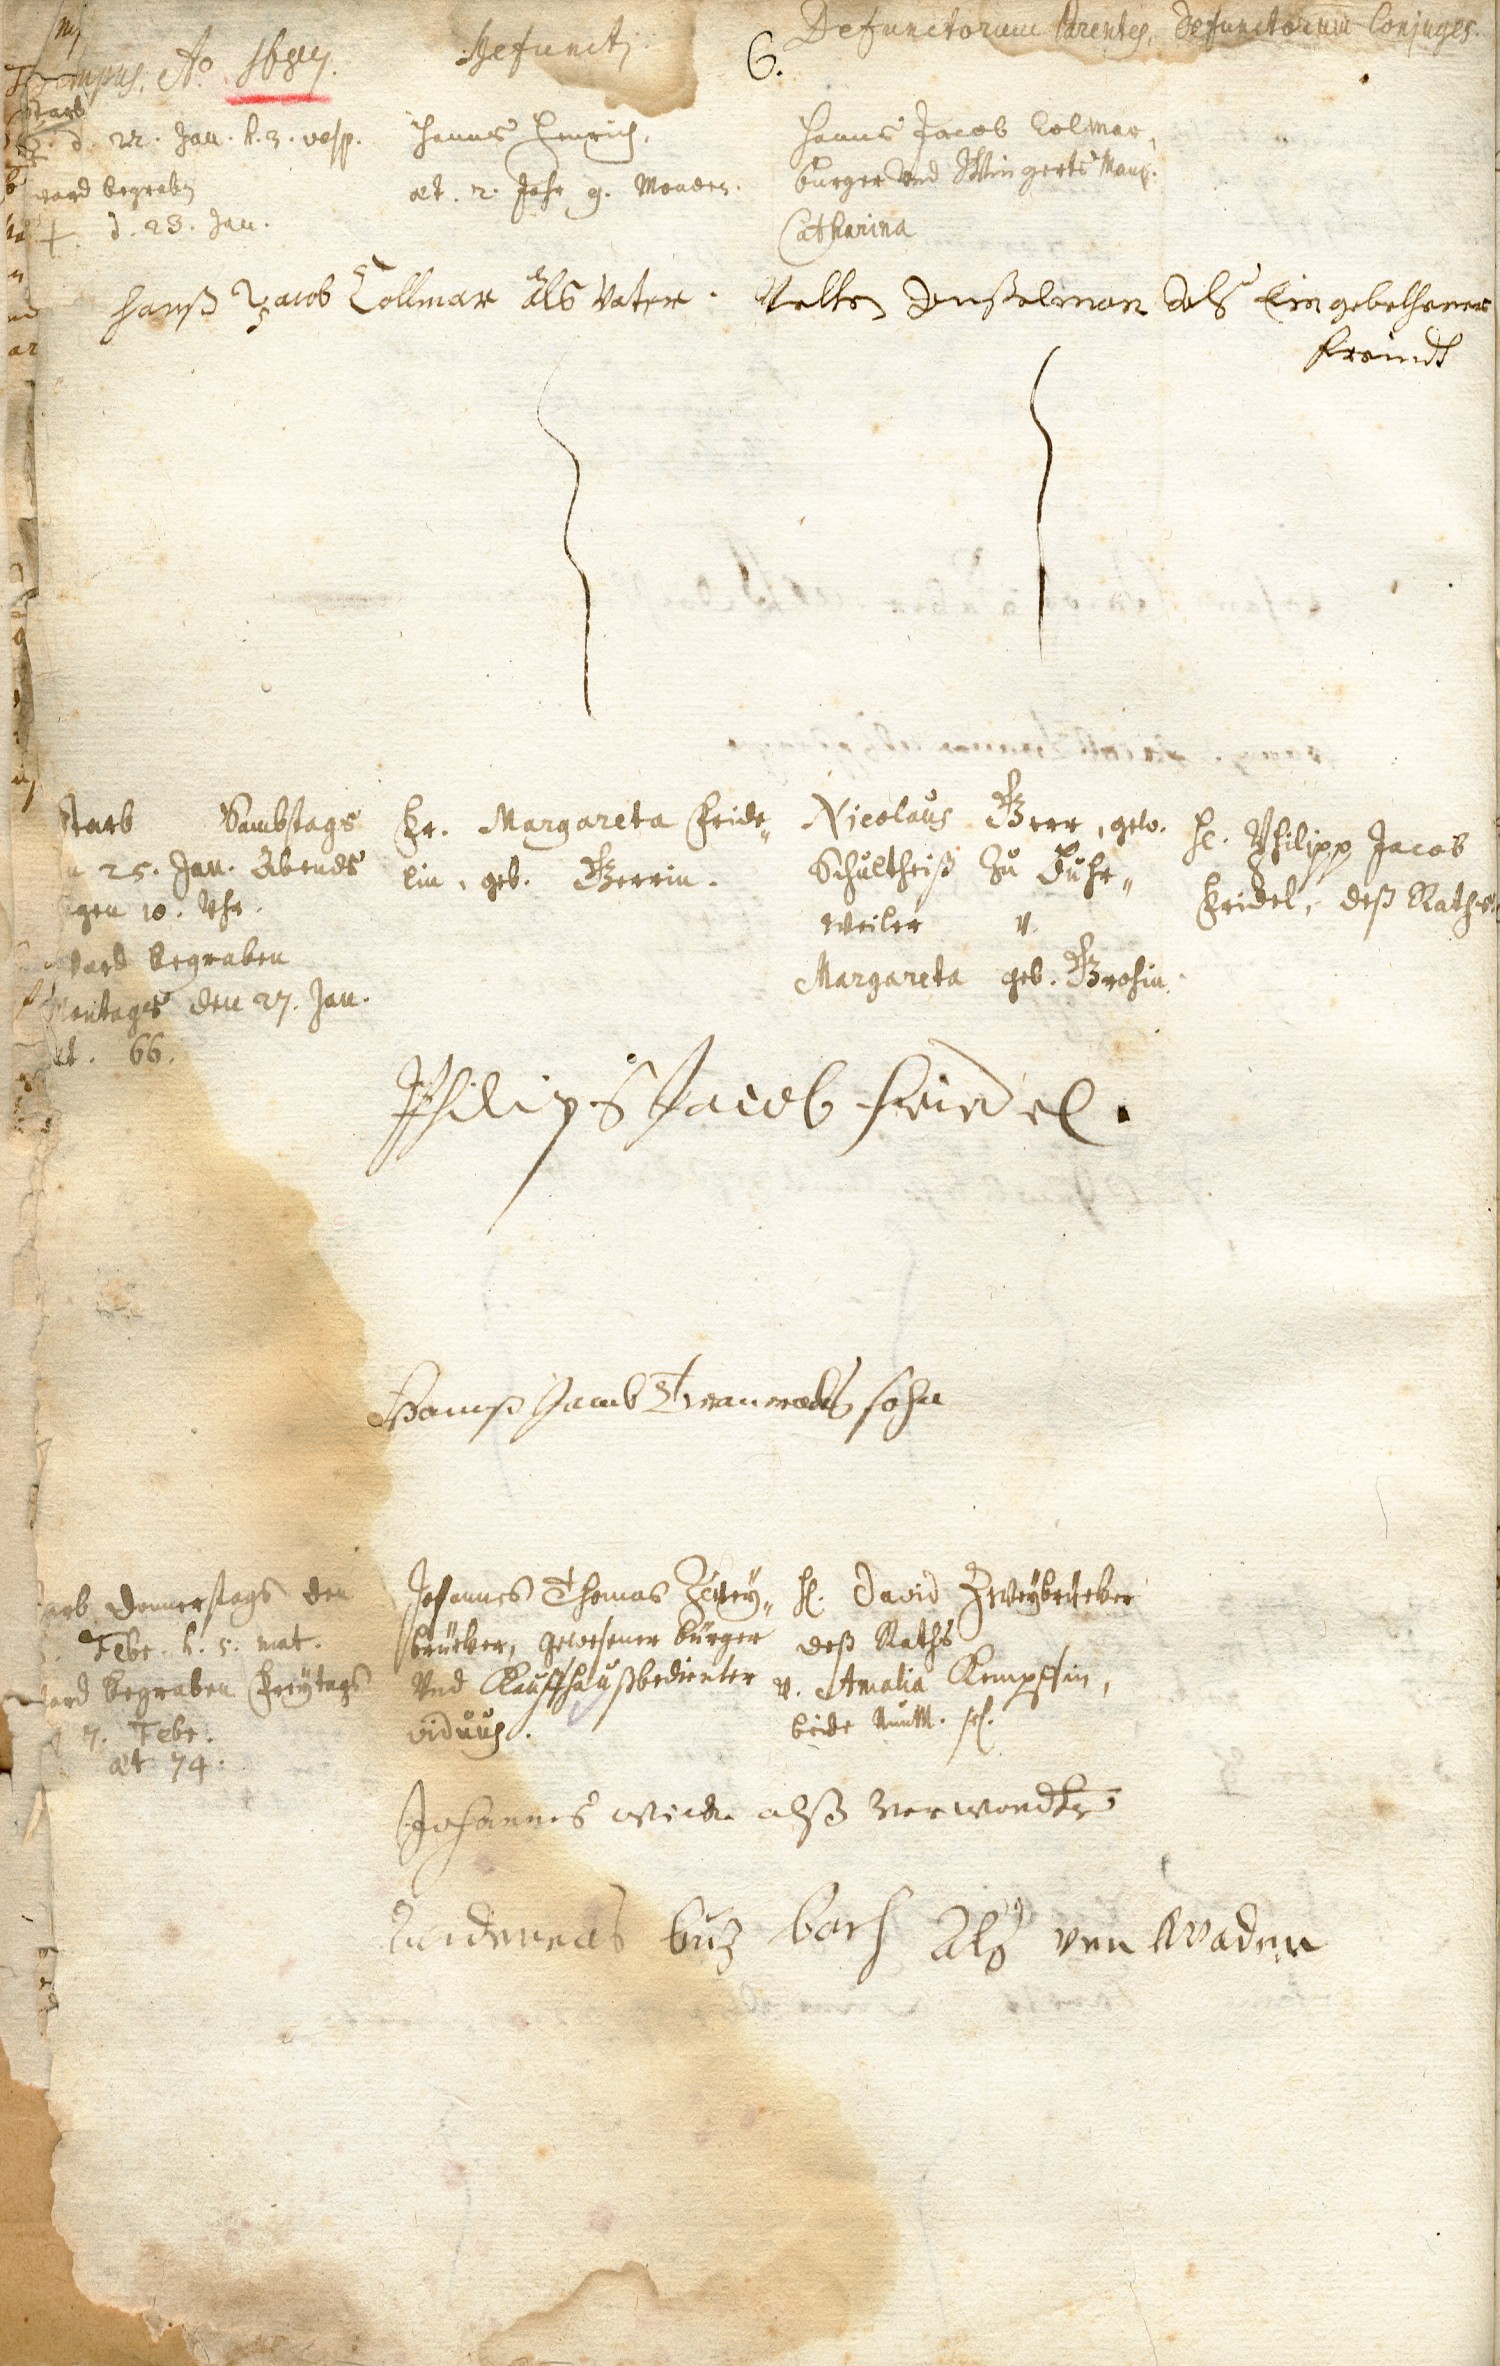 Tempus. Aō 1687.
Defuncti.
6.
Defunctorum Parentes, Defunctorum Conjuges.
Starb
d. 22. Jan. h. 3. vesp.
ward begraben
d. 23. Jan.
Hanns Henrich,
æt. 2. Jahr 9. Monden.
Hanns Jacob Colmar,
burger und Wingerts Mann.
Catharina
Hanß Jacob Collmar als Vater.
Velten als Ein gebethener
freindt
Starb Sambstags
25. Jan. Abends
gegen 10. Uhr.
ward begraben
Montags den 27. Jan.
æt. 66.
Fr. Margareta Fride„
lin, geb. Gerrin.
Nicolaus Gerr, gew.
Schultheiß zu Duhr„
weiler v.
Margareta geb. Grohin.
H. Philipp Jacob
Fridel, deß Raths.
Philips Jacob freidel.
Hanß Jacob sohn
Starb Donnerstags den
Febr. h. 5. mat.
ward begraben Freytags
7. Febr.
æt 74.
Johannes Thomas Zwey„
brücker, gewesener burger
und Kauffhaußbedienter
viduus.
H. David Zweybrücker
deß Raths
v. Amalia Kempffin,
beide sel.
Johannes alß verwandter
Andereas butz bach Als von Waden